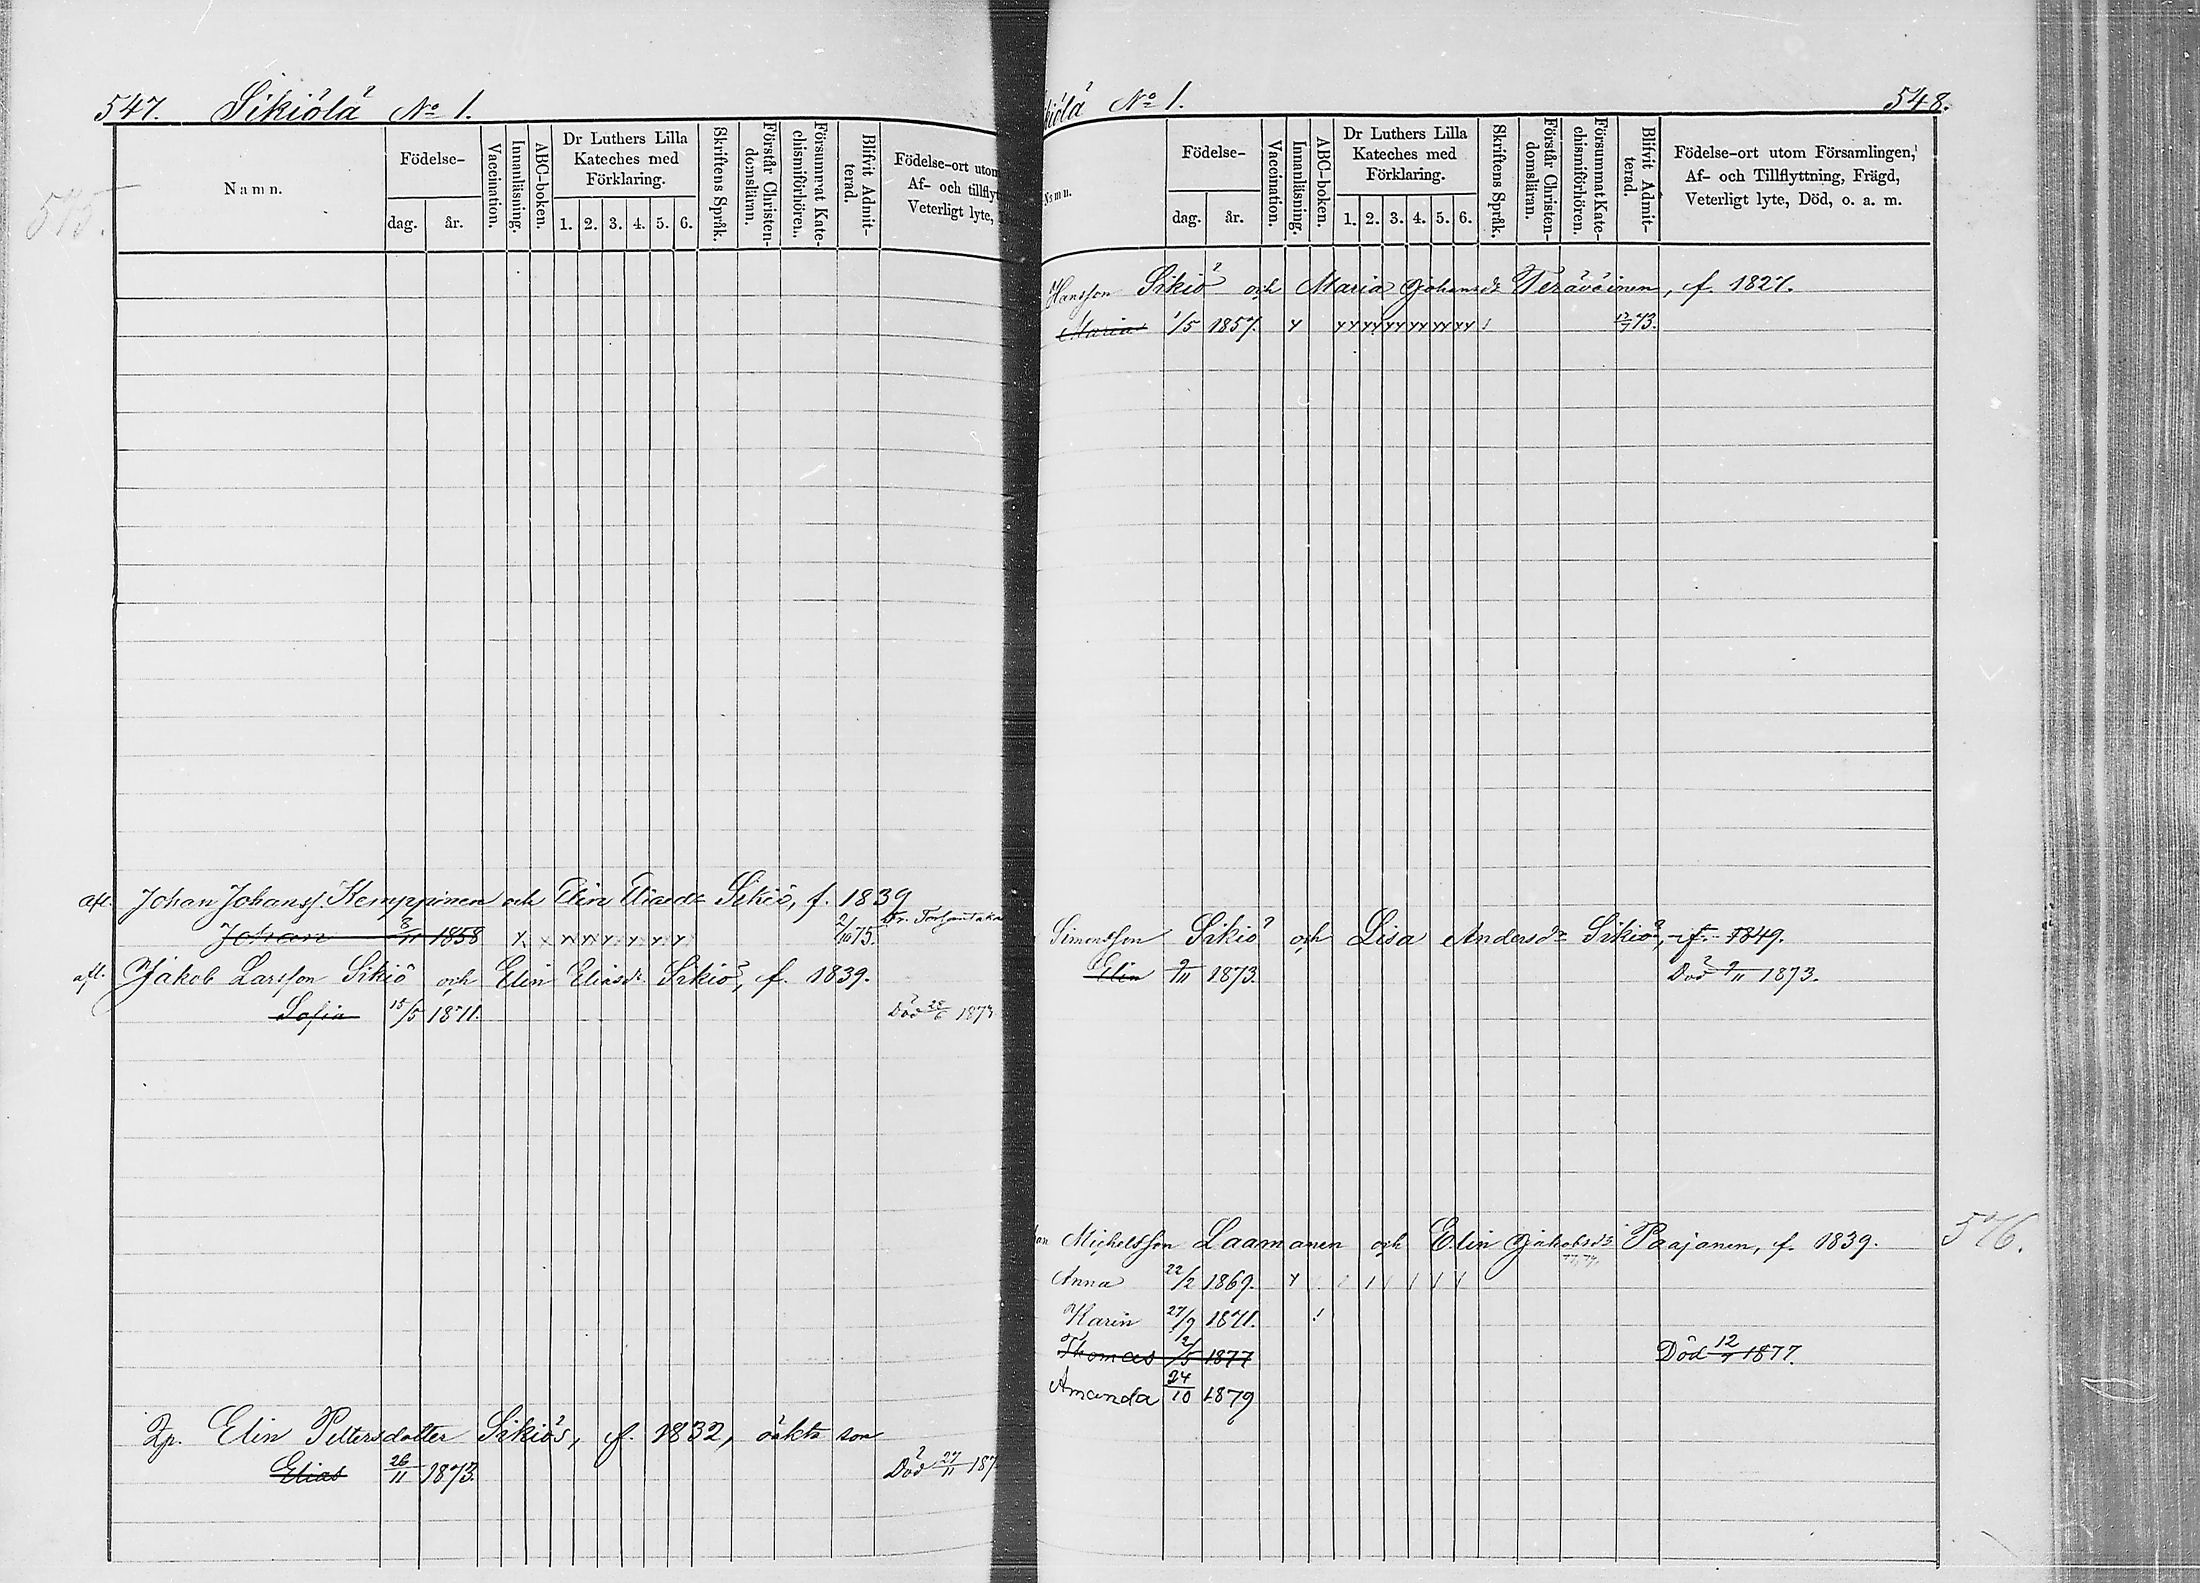 547. Sikiölä No 1.
575.
Namn.
Födelse-
dag. år.
Vaccination.
Innanläsning.
ABC-boken.
Dr Luthers Lilla
Kateches med
Förklaring.
1. 2. 3. 4. 5. 6.
Skriftens Språk.
Förstår Christen-
domsläran.
Försummat Kate-
chismiförhören.
Blifvit Admit-
terad.
Födelse-ort utom
Af- och tillflyt
Veterligt lyte,
afl. Johan Johanss. Kemppinen och Elin Eliasdr Sikiö, f. 1839
Johan 3/11 1858 2/10 75.
afl. Jakob Larsson Sikiö och Elin Eliasdr Sikiö, f. 1839.
Sofia 15/5 1871. Död 28/6 1873
Elin Pettersdotter Sikiös, f. 1832, oäkta son
Elias 26/11 1873. Död 27/11 187
kiölä No 1. 548.
Namn.
Födelse-
dag. år.
Vaccination.
Innanläsning.
ABC-boken.
Dr Luthers Lilla
Kateches med
Förklaring.
1. 2. 3. 4. 5. 6.
Skriftens Språk.
Förstår Christen-
domsläran.
Försummat Kate-
chismiförhören.
Blifvit Admit-
terad.
Födelse-ort utom Församlingen,
Af- och Tillflyttning, Frägd,
Veterligt lyte, Död, o. a. m.
Hansson Sikiö och Maria Johansdr Teräväinen, f. 1827.
Maria 1/5 1857. 73.
Simonsson Sikiö och Lisa Andersdr Sikiö, f. 1849.
Elin 9/11 1873. Död 9/11 1873.
Michelsson Laamanen och Elin Jakobsdr Paajanen, f. 1839.
576.
Anna 22/2 1869.
Karin 27/9 1871.
Thomas 2/5 1877 Död 12/7 1877.
Amanda 24/10 1879